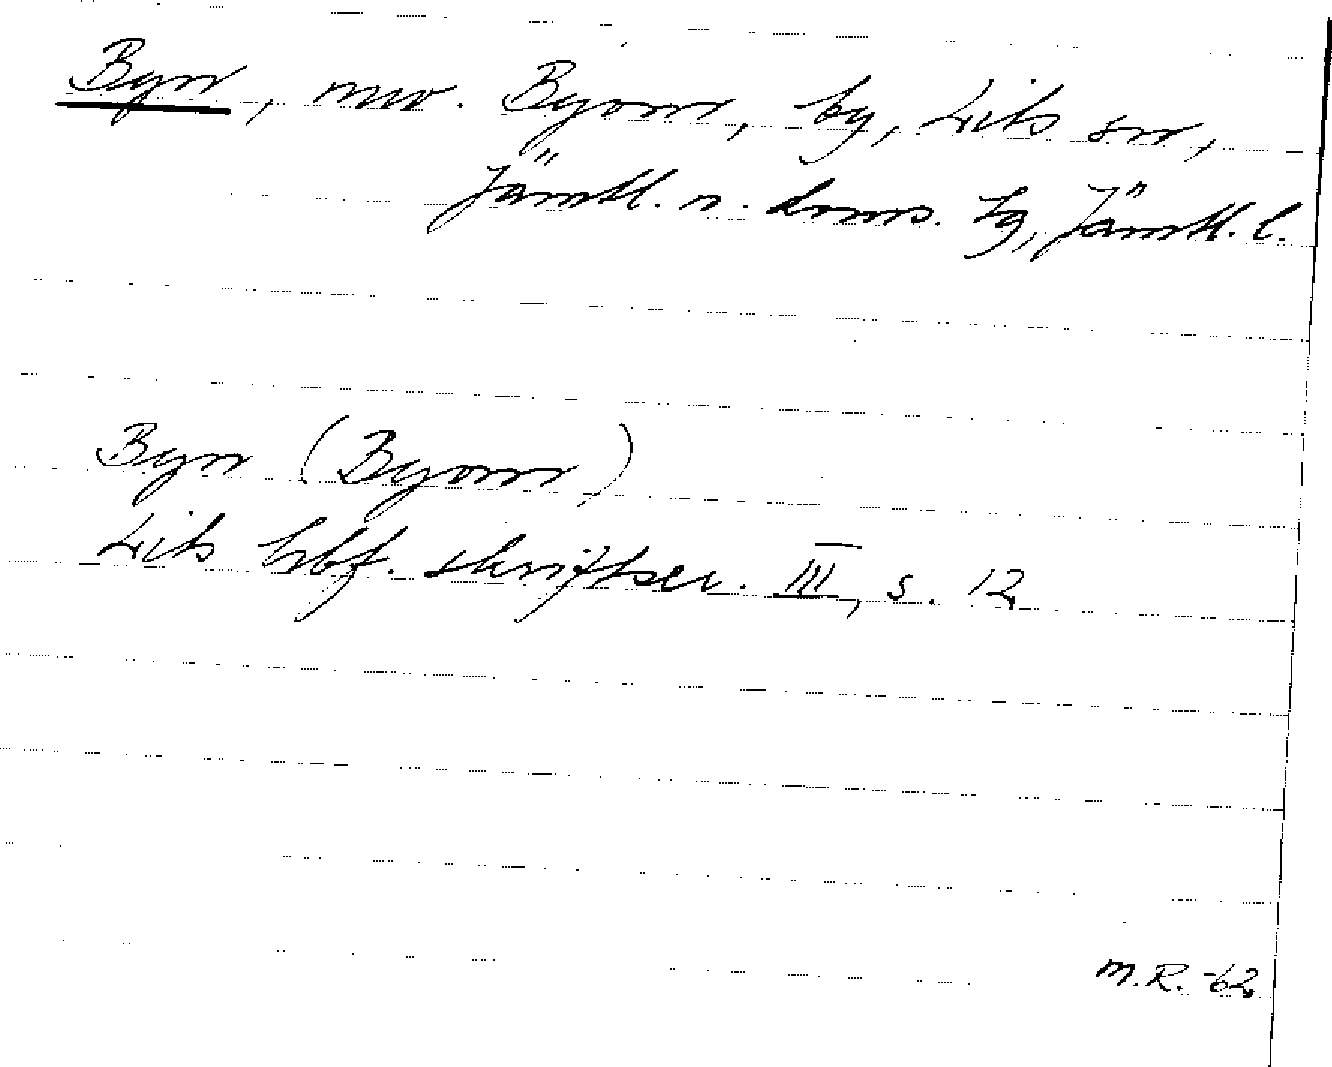 Byn, nuv. Byom, by, Lits sn,
Jämtl. n. doms. tg, Jämtl. l.
Byn (Byom)
Lits hbf. skriftser. III, s. 12
M.R. -62